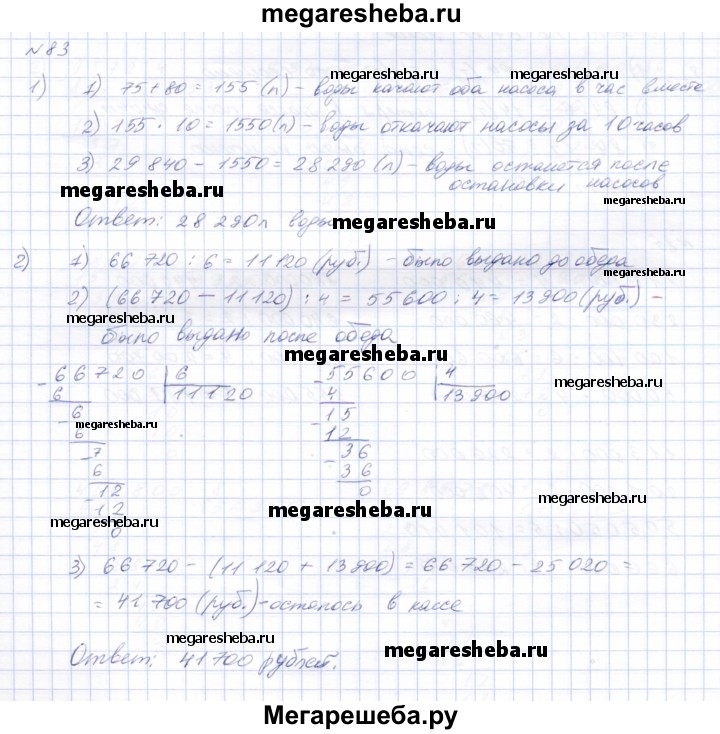 megaresheba.ru
№83
1) 1) 75+80=155 (л) - воды качают оба насоса в час вместе
megaresheba.ru megaresheba.ru
2) 155 · 10 = 1550 (л) - воды откачают насосы за 10 часов
megaresheba.ru
3) 29 840 - 1550 = 28 290 (л) - воды останется после
остановки насосов
megaresheba.ru
Ответ: 28 290 л воды
megaresheba.ru
2) 1) 66 720 : 6 = 11 120 (руб.) - было выдано до обеда
megaresheba.ru
2) (66 720 - 11 120) : 4 = 55 600 : 4 = 13 900 (руб.) -
megaresheba.ru megaresheba.ru
было выдано после обеда
megaresheba.ru
- 66720 | 6 - 55600 | 4
6 11120 4 13900
megaresheba.ru
- 6 - 15
megaresheba.ru
6 12
- 7 - 36
6 36
- 12 0
megaresheba.ru
12
megaresheba.ru megaresheba.ru
0
3) 66 720 - (11 120 + 13 900) = 66 720 - 25 020 =
= 41 700 (руб.) - осталось в кассе
megaresheba.ru megaresheba.ru
Ответ: 41 700 рублей.
Мегарешеба.ру